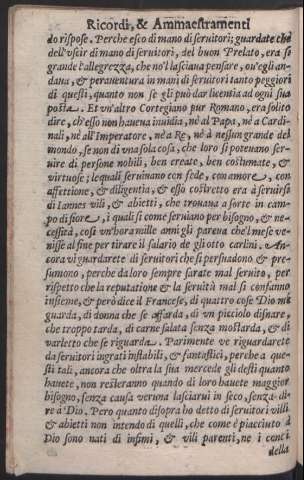 Ricordi, & Ammaestramenti
do rispose. Perche esco di mano di seruitori; guardate che
dell'vscir di mano di seruitori, del buon Prelato, era sì
grande l'allegrezza, che no'l lasciaua pensare, ou'egli an-
daua, & perauentura in mani di seruitori tanto peggiori
di questi, quanto non se gli può dar licentia ad ogni sua
posta. Et vn'altro Cortegiano pur Romano, era solito
dire, ch'esso non haueua inuidia, nè al Papa, nè a Cardi-
nali, nè all'Imperatore, nè a Re, nè à nessun grande del
mondo, se non di vna sola cosa, che loro si poteuano ser-
uire di persone nobili, ben create, ben costumate, &
virtuose; le quali seruiuano con fede, con amore, con
affettione, & diligentia, & esso costretto era à seruirsi
di huomini vili, & abietti, che trouaua a sorte in cam-
po di fiore, i quali si come seruiano per bisogno, & ne-
cessità, così vn'hora mille anni gli pareua che'l mese ve-
nisse al fine per tirare il salario de gli otto carlini. An-
cora vi guardarete di seruitori che si persuadono & pre-
sumono, perche da loro sempre sarate mal seruito, per
rispetto che la reputatione & la seruitù mal si confanno
insieme, & però dice il Francese, di quattro cose Dio mi
guarda, di donna che se affarda, di vn picciolo disnare,
che troppo tarda, di carne salata senza mostarda, & di
varletto che se riguarda. Parimente ve riguardarete
da seruitori ingrati instabili, & fantastici, perche a que-
sti tali, ancora che oltra la sua mercede gli desti quanto
hauete, non resteranno quando di loro hauete maggior
bisogno, senza causa veruna lasciarui in seco, senza di-
re à Dio. Pero quanto disopra ho detto di seruitori villi
& abietti non intendo di quelli, che come è piacciuto à
Dio sono nati di infimi, & vili parenti, ne i conci
della